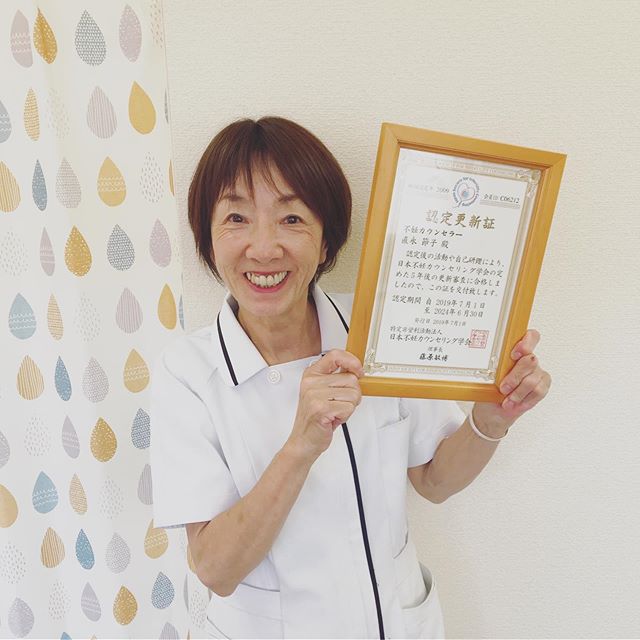 2009 会員ID C06212
認定更新証
不妊カウンセラー
直永 節子 殿
認定後の活動や自己研鑽により、
日本不妊カウンセリング学会の定
めた5年後の更新審査に合格しま
したので、この証を交付致します。
認定期間 自 2019年7月1日
至 2024年6月30日
2019年7月1日
特定非営利活動法人
日本不妊カウンセリング学会
理事長